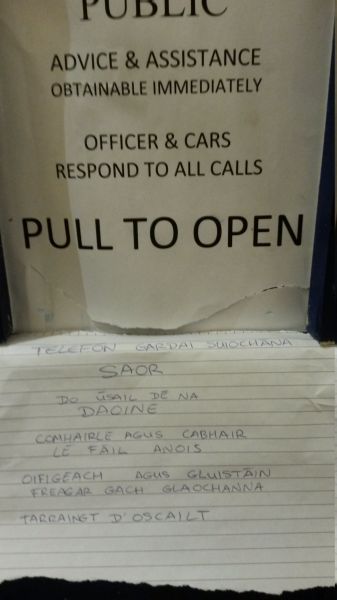 PUBLIC
ADVICE & ASSISTANCE
OBTAINABLE IMMEDIATELY
OFFICER & CARS
RESPOND TO ALL CALLS
PULL TO OPEN
TELEFÓN GARDAÍ SUIOCHANA
SAOR
DO ÚSAIL DE NA
DAOINE
COMHAIRLE AGUS CABHAIR
LE FAIL ANOIS
OIFIGEACH AGUS GLUISTÁIN
FREAGAR GACH GLAOCHANNA
TARRAINGT D'OSCAILT